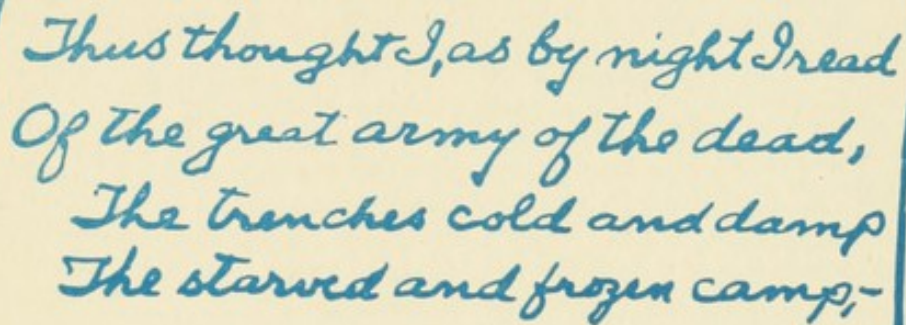 Thus thought I, as by night I read
Of the great army of the dead,
The trenches cold and damp
The starved and frozen camp,-